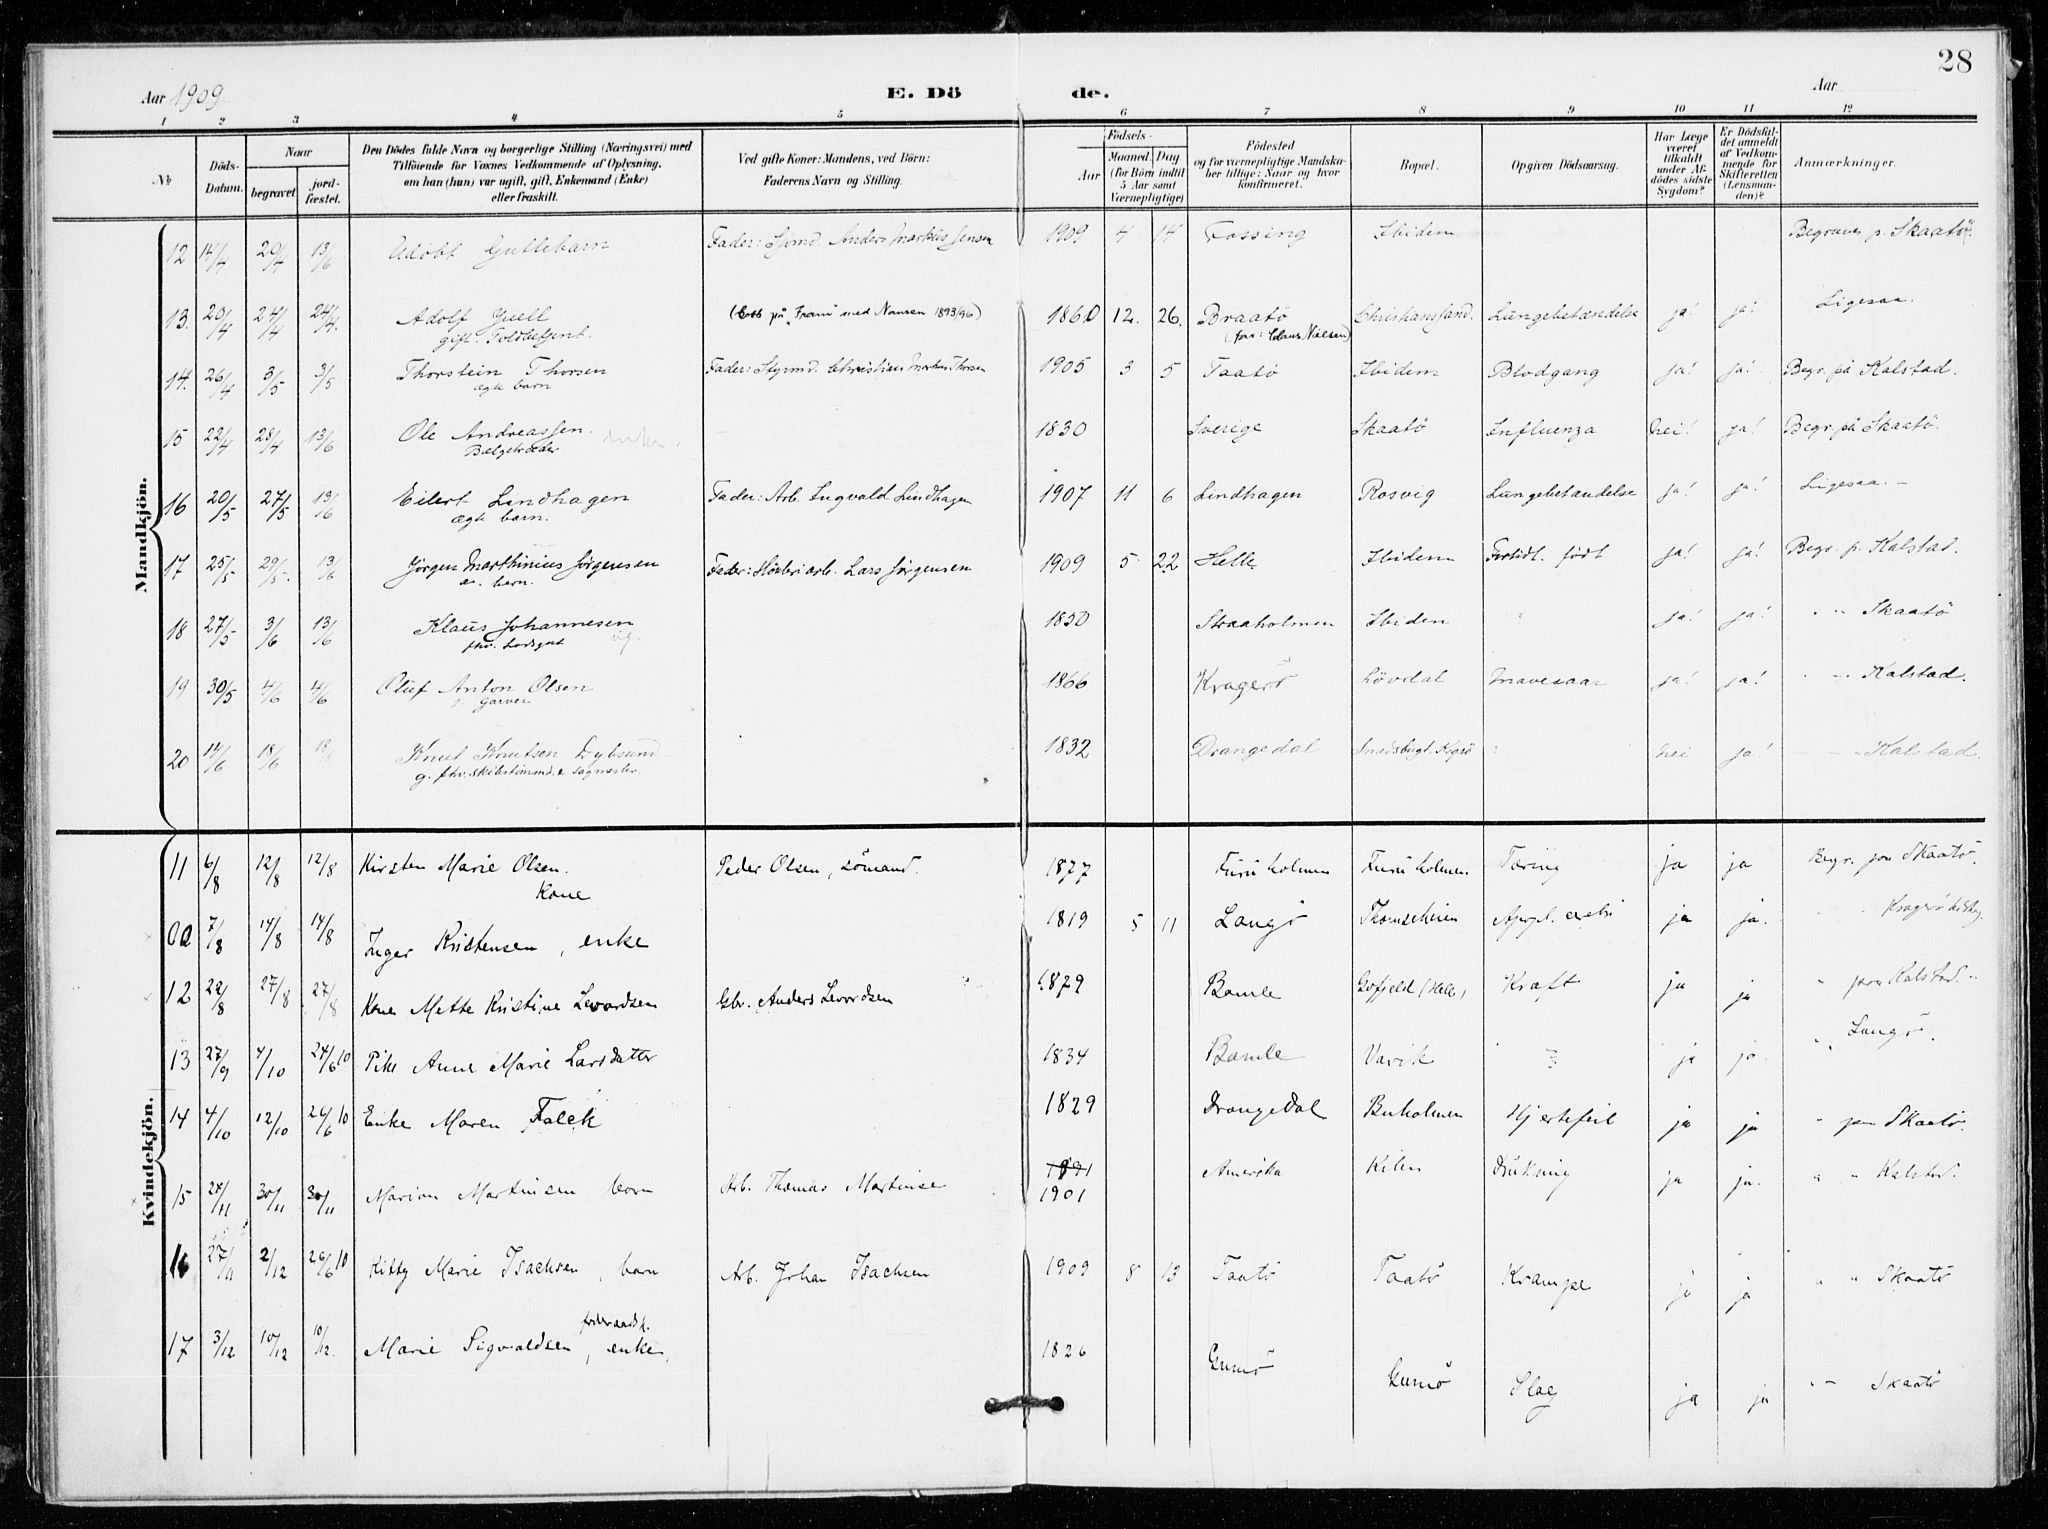 28
Aar 1909
E. Döde.
Aar
1 2 3 4 5 6 7 8 9 10 11 12
№
Döds-Datum.
Naar
begravet
jord-fæstet.
Den Dödes fulde Navn og borgerlige Stilling (Næringsvei) med
Tilföiende for Voxnes Vedkommende af Oplysning,
om han (hun) var ugift, gift, Enkemand (Enke)
eller fraskilt.
Ved gifte Koner: Mandens, ved Börn:
Faderens Navn og Stilling.
Födsels-
Aar
Maaned. Dag
(for Börn indtil
5 Aar samt
Værnepligtige)
Födested
og for værnepligtige Mandska-
ber tillige: Naar og hvor
konfirmeret.
Bopæl.
Opgiven Dödsaarsag.
Har Læge
været
tilkaldt
under Af-
dödes sidste
Sygdom?
Er Dödsfal-
det anmeldt
af Vedkom-
mende for
Skifteretten
(Lensman-
den)?
Anmærkninger.
Mandkjön.
12 14/4 29/4 13/6 Udöbt Guttebarn Fader: Sjmd. Anders Markus Jensen 1909 4 14 Fossing Ibidem Begraves p. Skaatö
13. 20/4 24/4 24/4. Adolf Juell ( på "Fram" med Nansen 1893/96) 1860 12. 26. Braatö Christianssand. Lungebetændelse ja! ja! Ligesaa.
gift. Toldbetjent. (far: Claus Nielsen)
14. 26/4 3/5 3/5 Thorstein Thorsen Fader: Styrmd. Christian Markus Thorsen 1905 3 5 Taatö Ibidem Blodgang ja! ja! Begr. på Kalstad.
ægte barn
15 22/4 28/4 13/6 Ole Andreassen. enkem. — 1830 Sverige Skaatö Influenza Nei! ja! Begr. på Skaatö.
Bælgetræder
16 20/5 27/5 13/6 Eilert Lindhagen Fader: Arb. Ingvald Lindhagen 1907 11 6 Lindhagen Rosvig Lungebetændelse ja! ja! Ligesaa. —
ægte barn.
17 25/5 29/5. 13/6 Jörgen Marthinius Jörgensen Fader: arb. Lars Jörgensen 1909 5 22 Helle Ibidem Fortidl. födt ja! ja! Begr. p. Kalstad.
æ. barn.
18 27/5 3/6 13/6 Klaus Johannesen 1850 Straaholmen Ibidem " ja! ja! " " Skaatö
fhv. Lodsgut ug.
19 30/5 4/6 4/6 Oluf Anton Olsen 1866 Kragerö Lövdal Mavesaar ja! ja! " " Kalstad.
g. Garver
20 14/6 18/6 18/6 Knut Knutsen Dybsund 1832 Drangedal Smedsbugt. Kgrö Nei ja! " Kalstad.
g. fhv. skibstömmd. & sagmester.
Kvindekjön.
11 6/8 12/8 12/8 Kirsten Marie Olsen. Peder Olsen, sömand. 1827 Furuholmen Furuholmen Tæring ja ja Begr. paa Skaatö.
Kone
7/8 14/8 14/8 Inger Kristensen, enke 1819 5 11 Langö Thomsheien Apopl. cerebri ja ja.
12 22/8 27/8 27/8 Kone Mette Kristine Levordsen Gbr. Anders Levordsen 1829 Bamle (Helle) Kræft ja ja " paa Kalstad.
13 27/9 4/10 24/6 10 Pike Anne Marie Larsdatter 1834 Bamle Vavik ? ja ja. " Langö.
14 4/10 12/10 26/6 10 Enke Maren Falck 1829 Drangedal Buholmen Hjertefeil ja ja " paa Skaatö.
15 24/11 30/11 30/11 Marion Martinsen, barn Arb. Thomas Martinse 1891 Amerika Kilen Drukning ja ja. " " Kalstad.
1901
16 27/11 2/12 26/6 10 Kitty Marie Isachsen, barn Arb. Johan Isachsen 1909 8 13 Taatö Taatö Krampe ja ja " " Skaatö
17 3/12 10/12 10/12. Marie Sigvaldsen, enke, 1826 Gumö Gumö Slag ja ja " " Skaatö